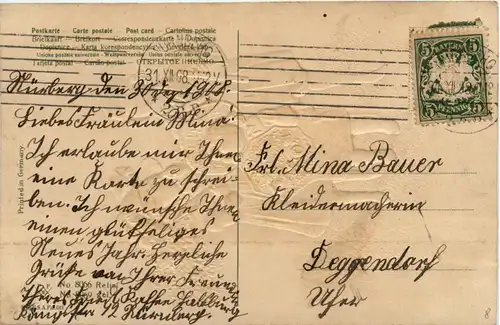 Postkarte Carte postale Post card Cartolina postale
Briefkaart Brefkort Correspondenzkarte Dopisnica
Dopisnice Karta korespondencyjna Levelező-Lap
Unione postale universale Weltpostverein Union postale universelle
Tarjeta postal Cartão postal ОТКРЫТОЕ ПИСЬМО
31 XII 08
5 BAYERN 5
Nürnberg den 30 Dez. 1908.
Liebes Fräulein Mina!
Ich erlaube mir Ihnen
eine Karte zu schrei-
ben. Ich wünsche Ihnen
einen glückseliges
Neues Jahr. Herzliche
Grüße von Ihrer
No. 8066 Relief
Nürnberg.
Printed in Germany
Frl. Mina Bauer
Kleidermacherin
Deggendorf
Ufer
8